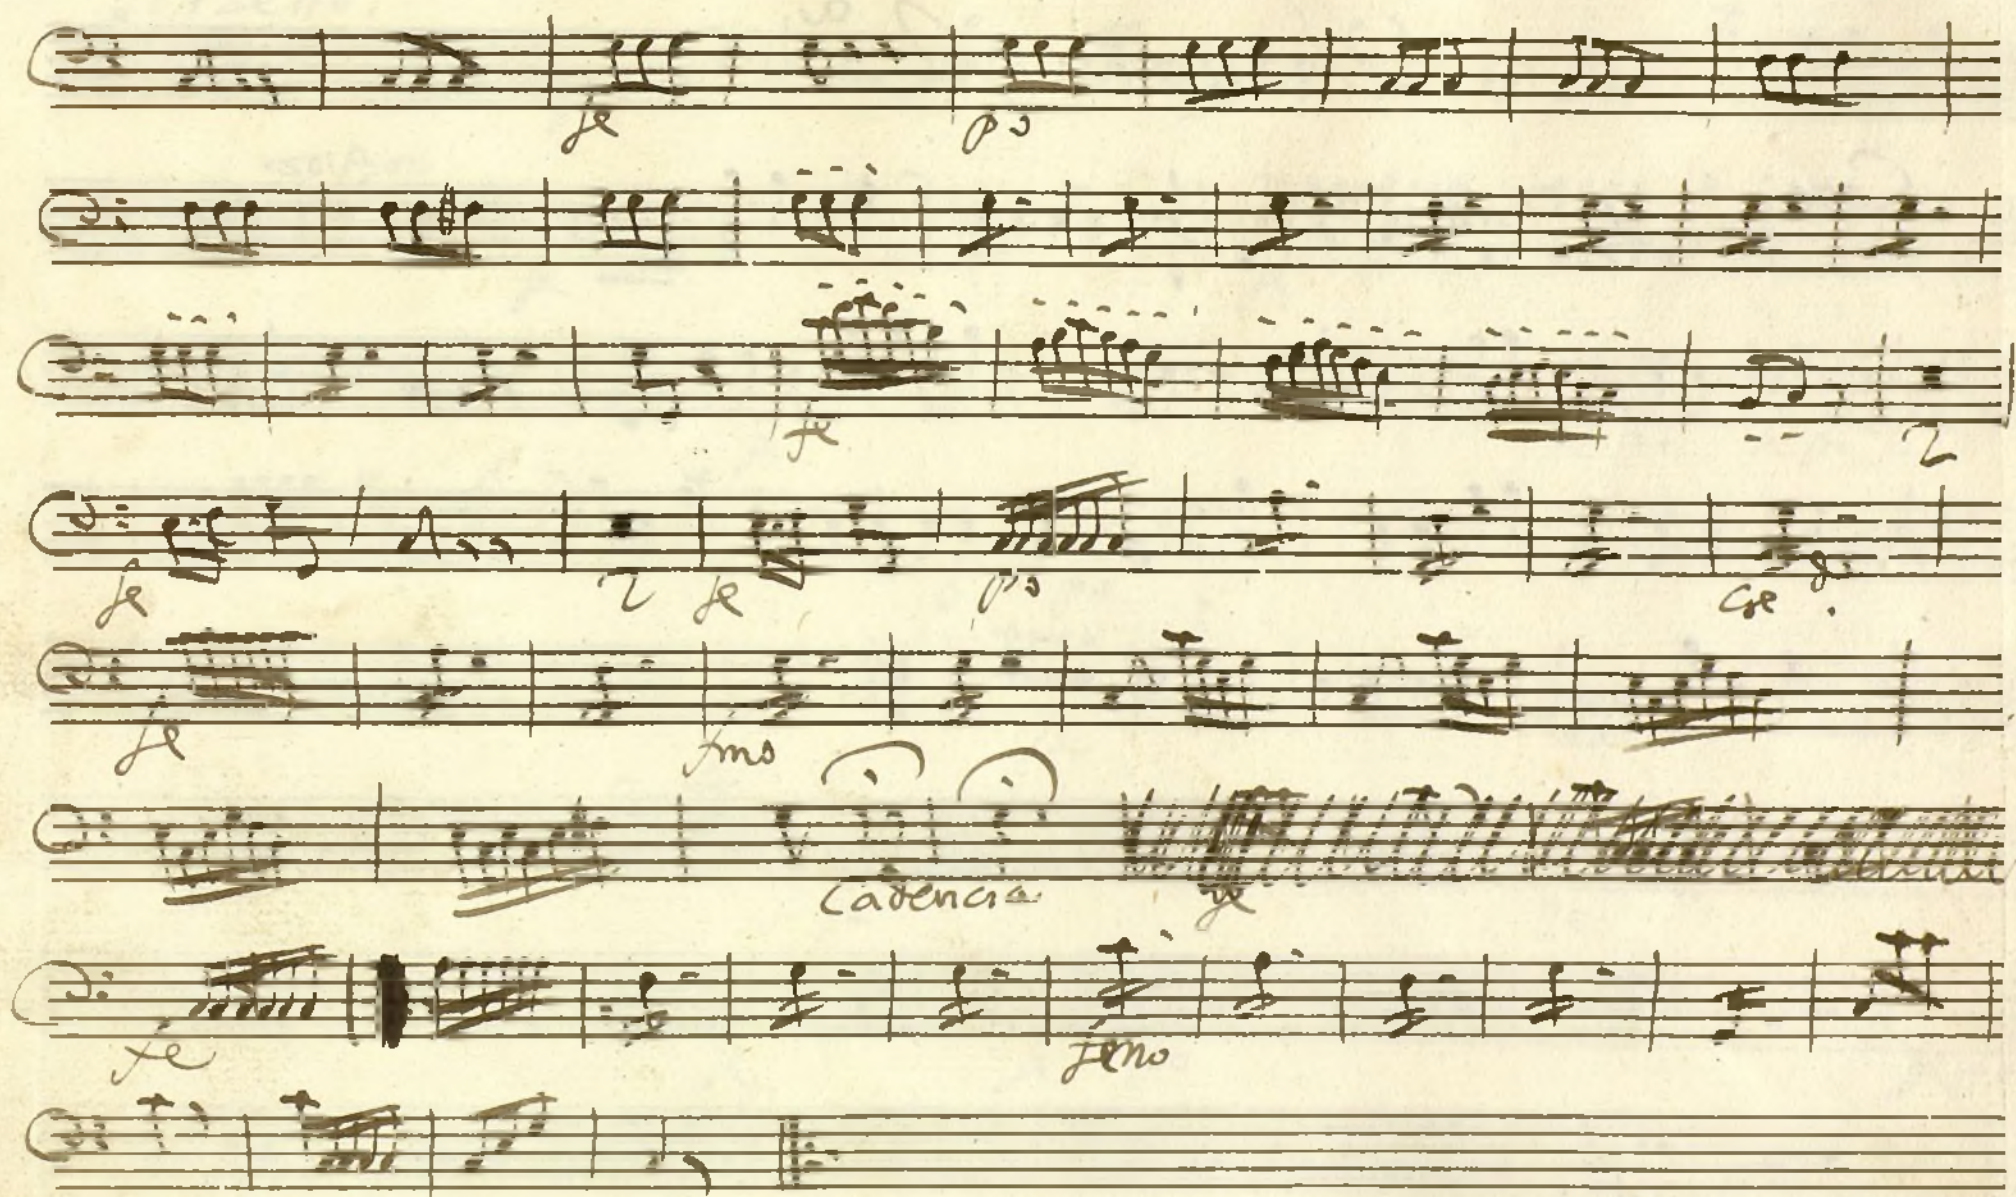 fe po
fe
fe 2 fe po Cre
fe fmo
Cadencia fe
fe femo